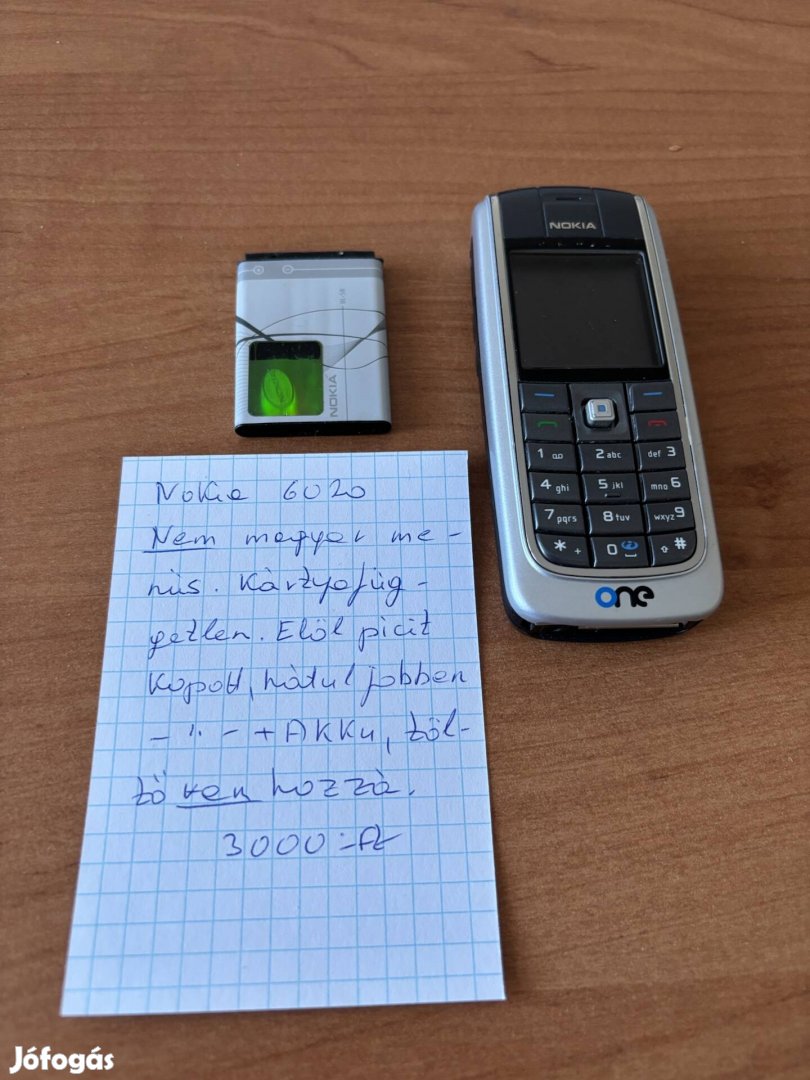 NOKIA
BL-5B
NOKIA
1
2 abc
def 3
4 ghi
5 jkl
mno 6
7 pqrs
8 tuv
wxyz 9
* +
0
#
one
Nokia 6020
Nem magyar me-
nüs. Kártyafüg-
getlen. Elöl picit
kopott, hátul jobban
- " - + AKKu, töl-
tő van hozzá.
3000.-Ft
Jófogás